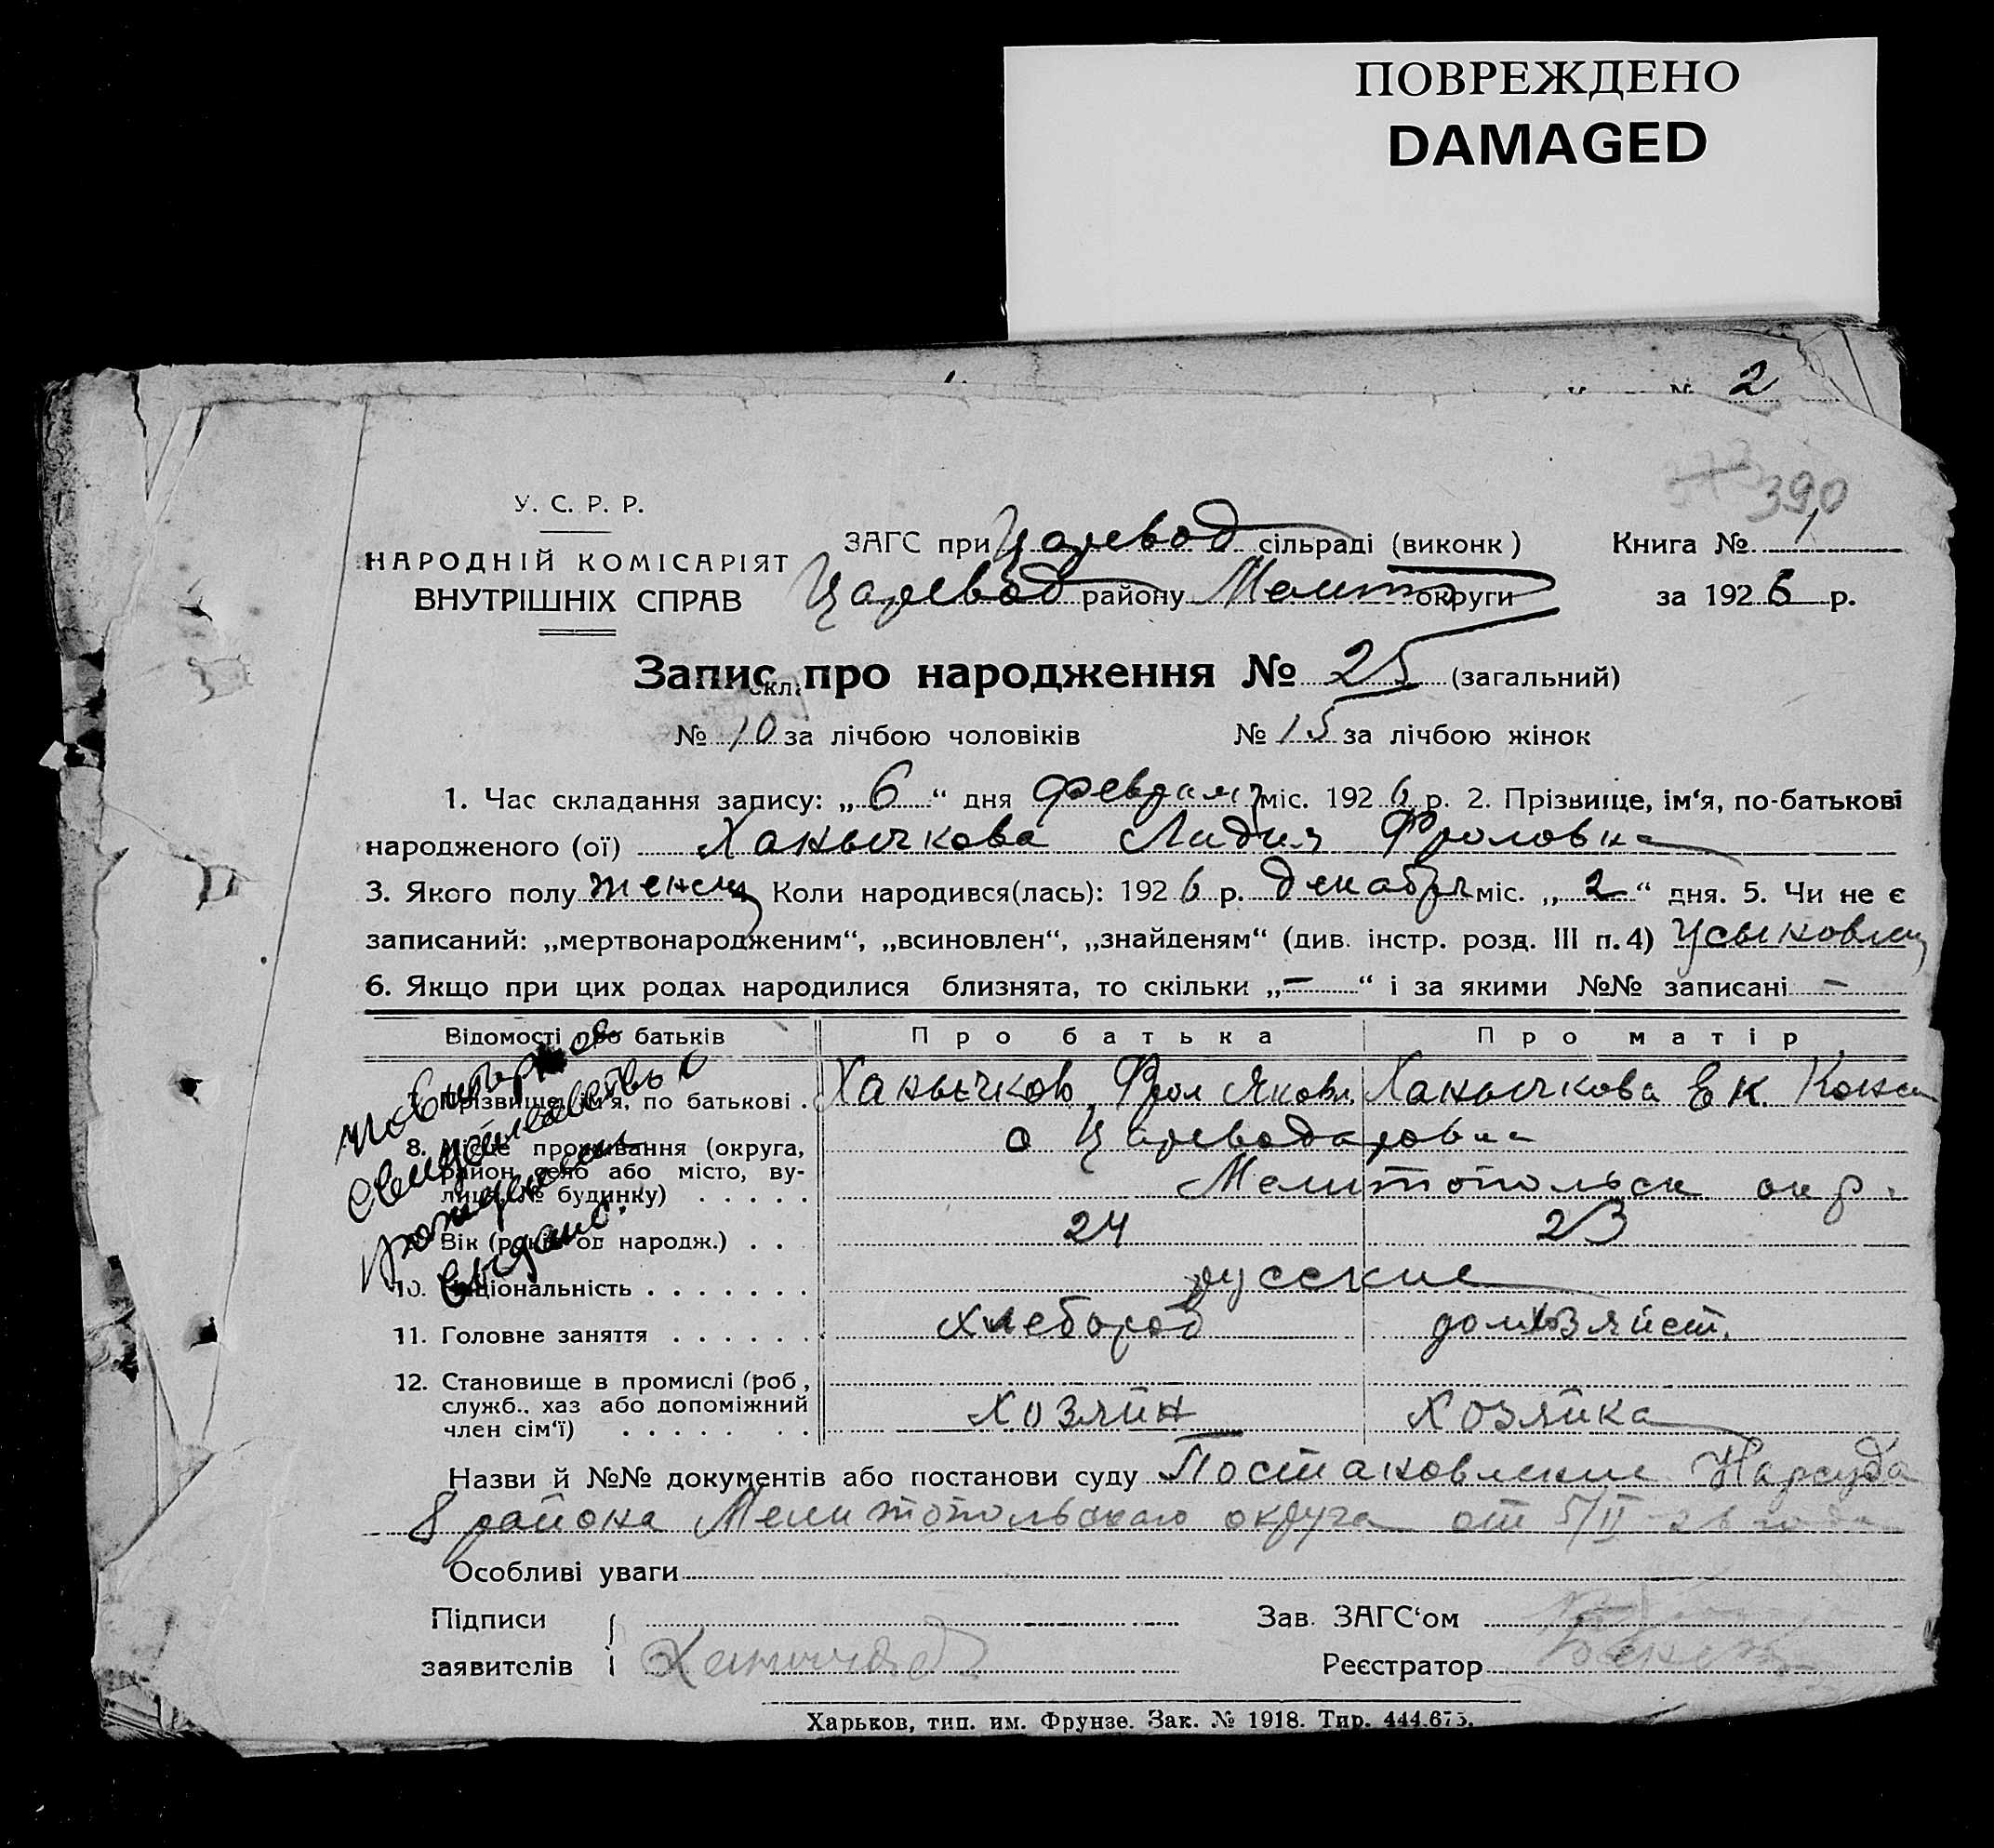 ПОВРЕЖДЕНО
DAMAGED
№ 2
373 390
У. С. Р. Р.
НАРОДНІЙ КОМІСАРІЯТ
ВНУТРІШНІХ СПРАВ
ЗАГС при Царевод сільраді (виконк)
Царевод району Мелит округи
Книга № 1
за 1926 р.
Запис про народження № 25 (загальний)
скл.
№ 10 за лічбою чоловіків № 15 за лічбою жінок
1. Час складання запису: „6“ дня февраля міс. 1926 р. 2. Прізвище, ім‘я, по-батькові
народженого (ої) Ханычкова Лидия Фроловна
3. Якого полу женск Коли народився(лась): 1926 р. декабря міс. „2“ дня. 5. Чи не є
записаний: „мертвонародженим“, „всиновлен“, „знайденям“ (див. інстр. розд. III п. 4)
6. Якщо при цих родах народилися близнята, то скільки „—“ і за якими №№ записані —
Відомості про батьків Про батька Про матір
7. Прізвище, ім‘я, по батькові . Ханычков Фрол Яковл. Ханычкова Ек.
8. Місце проживання (округа, район, село або місто, ву-
лиця, № будинку) . . . . . с Цареводаровка
Мелитопольск окр.
9. Вік (років од народж.) . . 24 23
10. Національність . . . . . . . русские
11. Головне заняття . . . . . . хлебороб домхозяйст.
12. Становище в промислі (роб,
служб., хаз або допоміжний
член сім‘ї) . . . . . . . хозяин хозяйка
повторное
свидетельство
рождении
выдано.
Назви й №№ документів або постанови суду Постановление Нарсуда
8 района Мелитопольскаго округа от 5/II-26 года
Особливі уваги
Підписи Зав. ЗАГС‘ом
заявителів Реєстратор
Харьков, тип. им. Фрунзе. Зак. № 1918. Тир. 444.675.